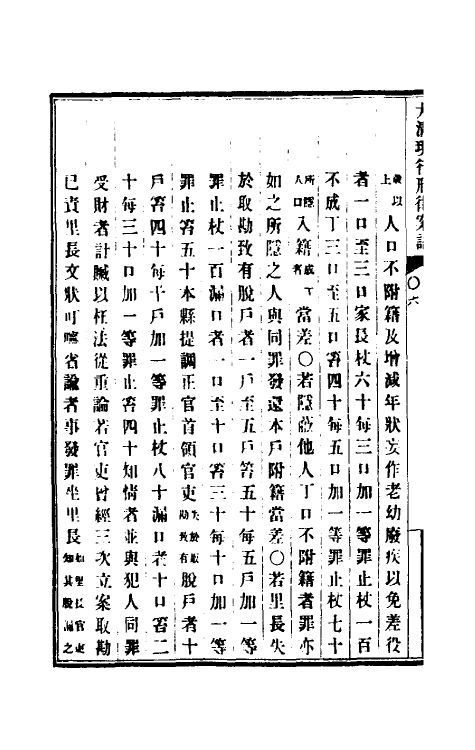 大清現行刑律案語
〇六
歲以上人口不附籍及增減年狀妄作老幼廢疾以免差役
者一口至三口家長杖六十每三口加一等罪止杖一百
不成丁三口至五口笞四十每五口加一等罪止杖七十
所隱人口入籍成丁者當差〇若隱蔽他人丁口不附籍者罪亦
如之所隱之人與同罪發還本戶附籍當差〇若里長失
於取勘致有脫戶者一戶至五戶笞五十每五戶加一等
罪止杖一百漏口者一口至十口笞三十每十口加一等
罪止笞五十本縣提調正官首領官吏失於取勘致有脫戶者十
戶笞四十每十戶加一等罪止杖八十漏口者十口笞二
十每三十口加一等罪止笞四十知情者並與犯人同罪
受財者計贓以枉法從重論若官吏曾經三次立案取勘
已責里長文狀叮嚀省諭者事發罪坐里長如里長官吏知其脫漏之